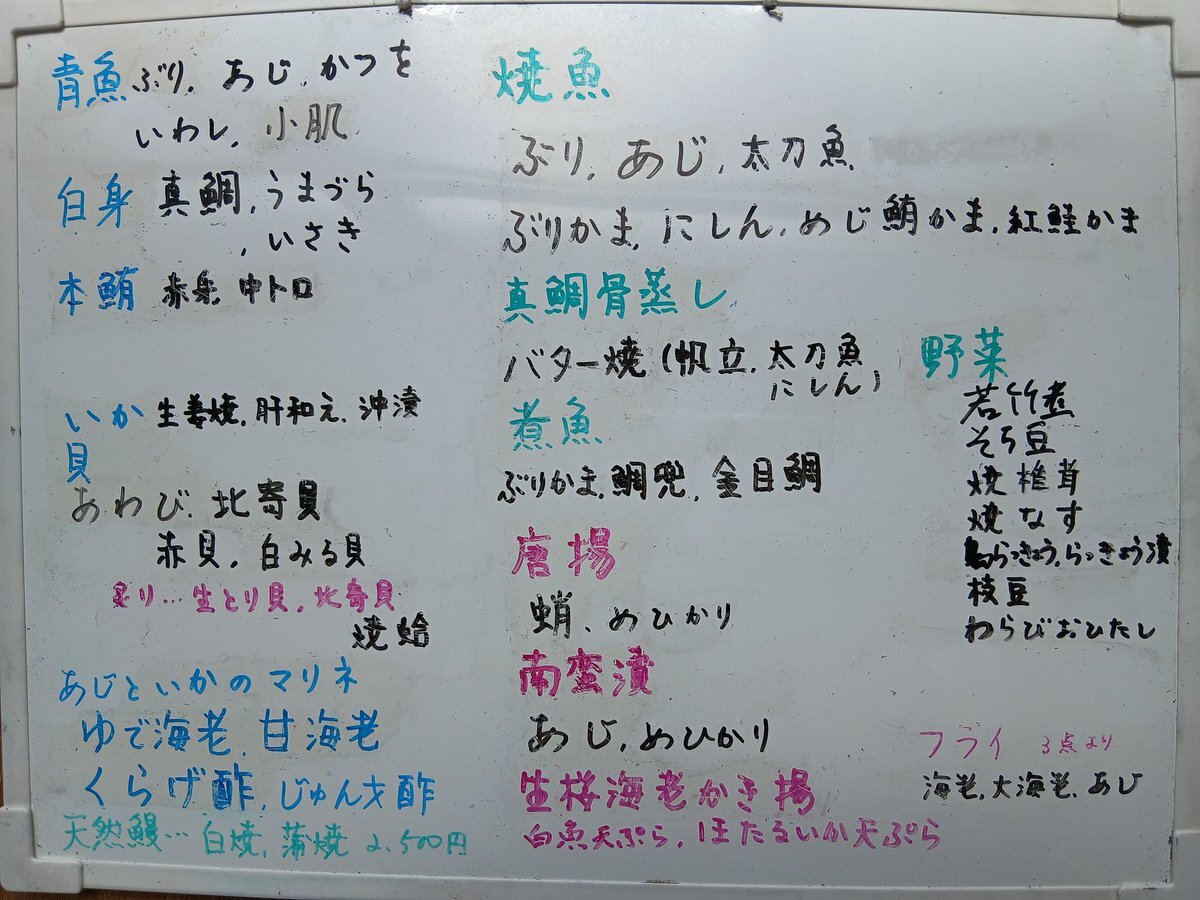 青魚 ぶり、あじ、かつを
いわし、小肌
白身 真鯛、うまづら
、いさき
本鮪 赤身、中トロ
いか 生姜焼、肝和え、沖漬
貝
あわび、北寄貝
赤貝、白みる貝
炙り…生とり貝、北寄貝
焼蛤
あじといかのマリネ
ゆで海老、甘海老
くらげ酢、じゅんさい酢
天然鰻… 白焼、蒲焼 2,500円
焼魚
ぶり、あじ、太刀魚
ぶりかま、にしん、めじ鮪かま、紅鮭かま
真鯛骨蒸し
バター焼(帆立、太刀魚
にしん)
煮魚
ぶりかま、鯛兜、金目鯛
唐揚
蛸、めひかり
南蛮漬
あじ、めひかり
生桜海老かき揚
白魚天ぷら、ほたるいか天ぷら
野菜
若竹煮
そら豆
焼椎茸
焼なす
島らっきょう、らっきょう漬
枝豆
わらびおひたし
フライ 3点より
海老、大海老、あじ